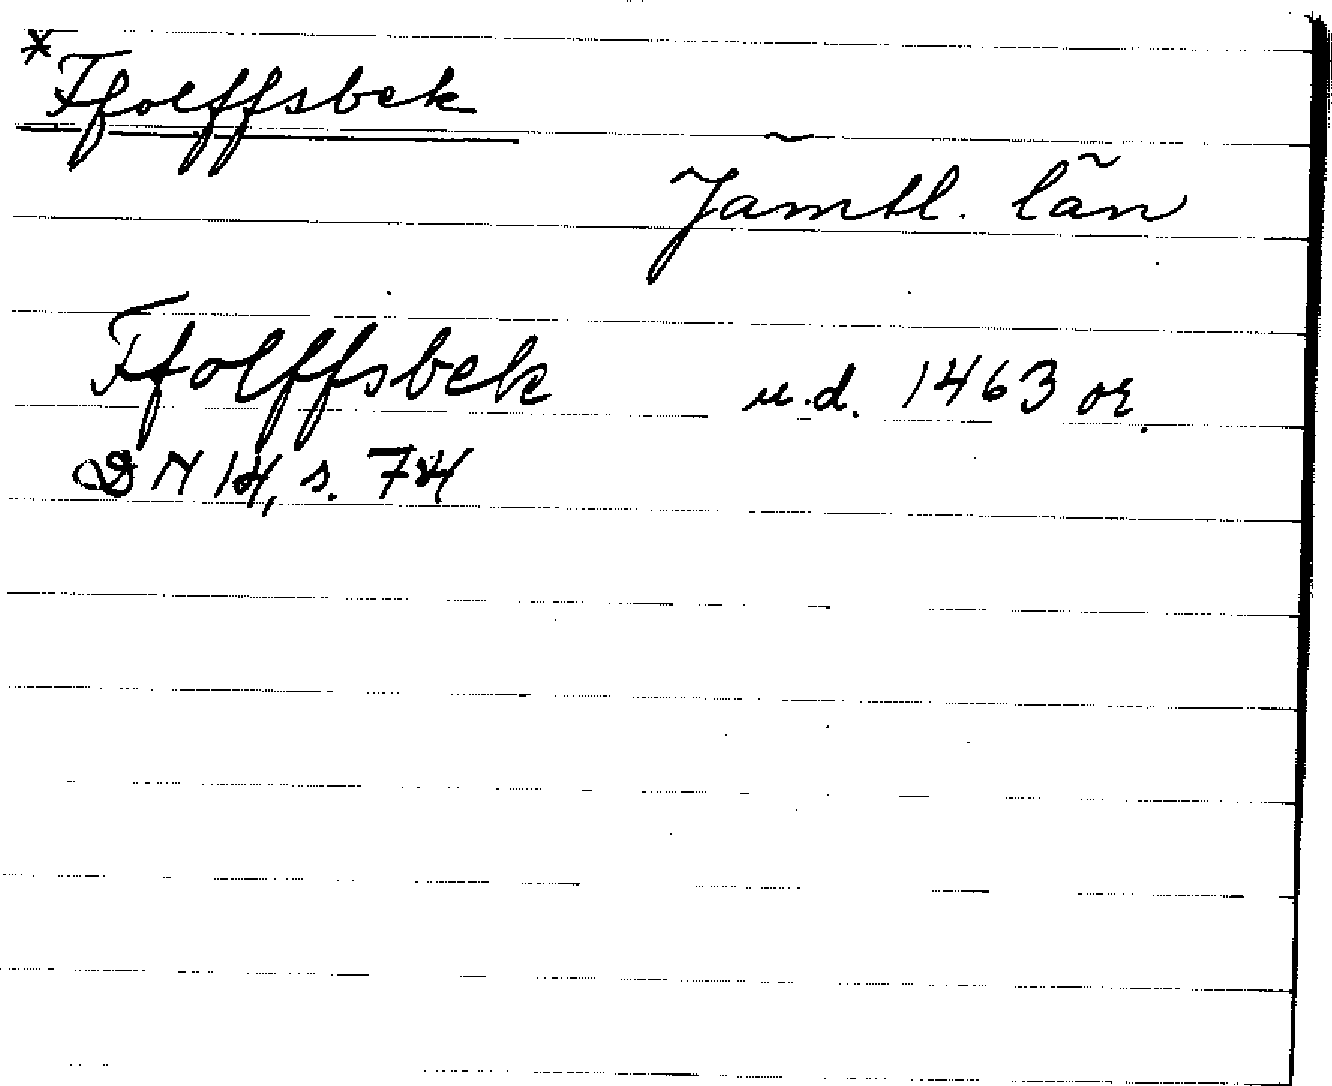 *Ffolffsbek
Jämtl. län
Ffolffsbek u.d. 1463 or.
DN 14, s. 74